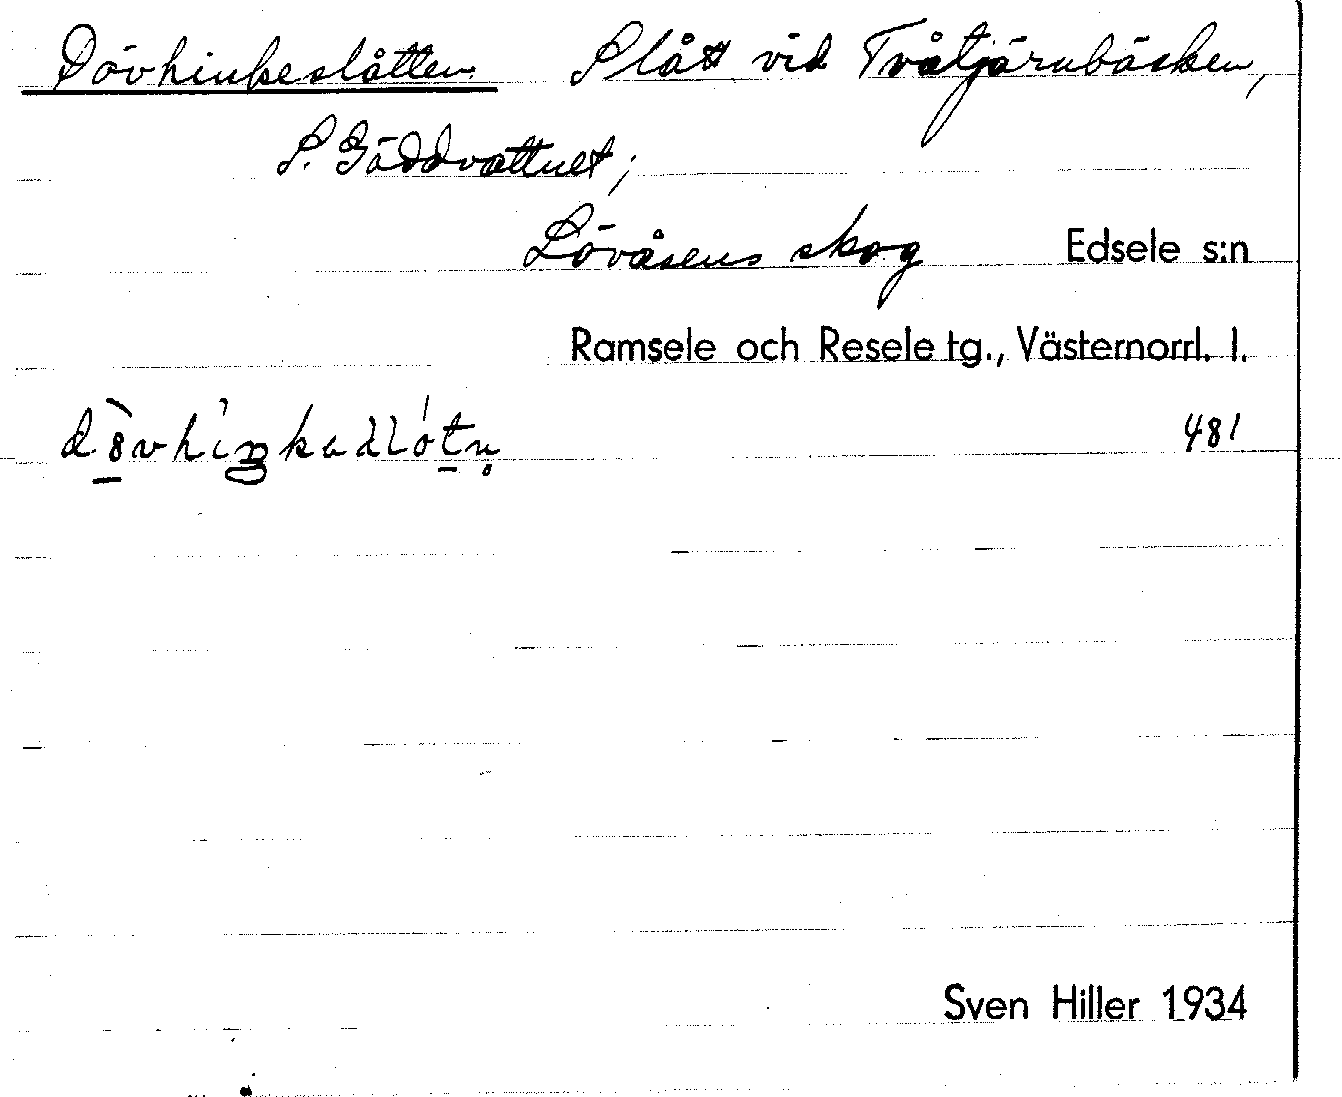 Dövhinkeslåtten Slått vid Tvåtjärnbäcken,
S. Gäddvattnet;
Lövåsens skog Edsele s:n
Ramsele och Resele tg., Västernorrl. l.
481
Sven Hiller 1934